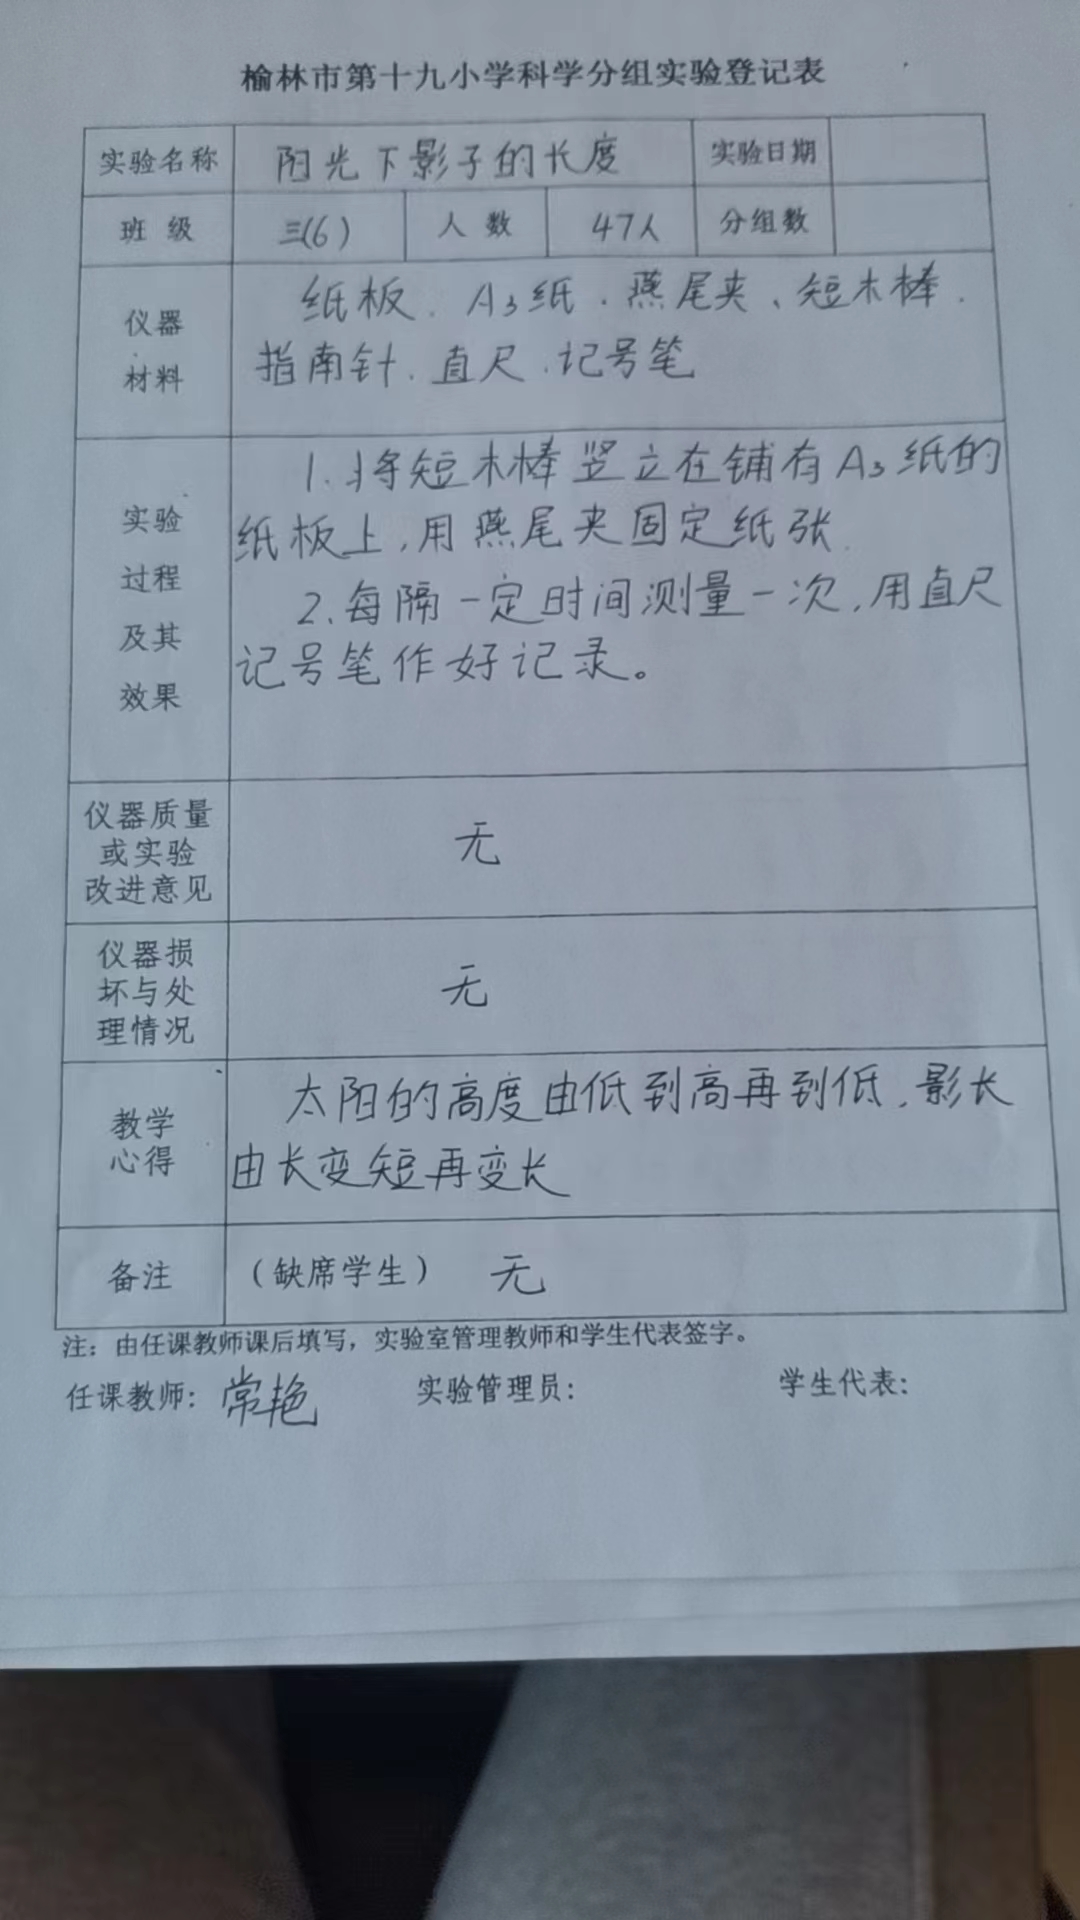 榆林市第十九小学科学分组实验登记表
实验名称 阳光下影子的长度 实验日期
班 级 三(6) 人 数 47人 分组数
仪器
材料
纸板、A3纸、燕尾夹、短木棒、
指南针、直尺、记号笔
实验
过程
及其
效果
1.将短木棒竖立在铺有A3纸的
纸板上,用燕尾夹固定纸张.
2、每隔一定时间测量一次,用直尺
记号笔作好记录。
仪器质量
或实验
改进意见
无
仪器损
坏与处
理情况
无
教学
心得
太阳的高度由低到高再到低,影长
由长变短再变长
备注 (缺席学生) 无
注:由任课教师课后填写,实验室管理教师和学生代表签字。
任课教师:常艳 实验管理员: 学生代表: